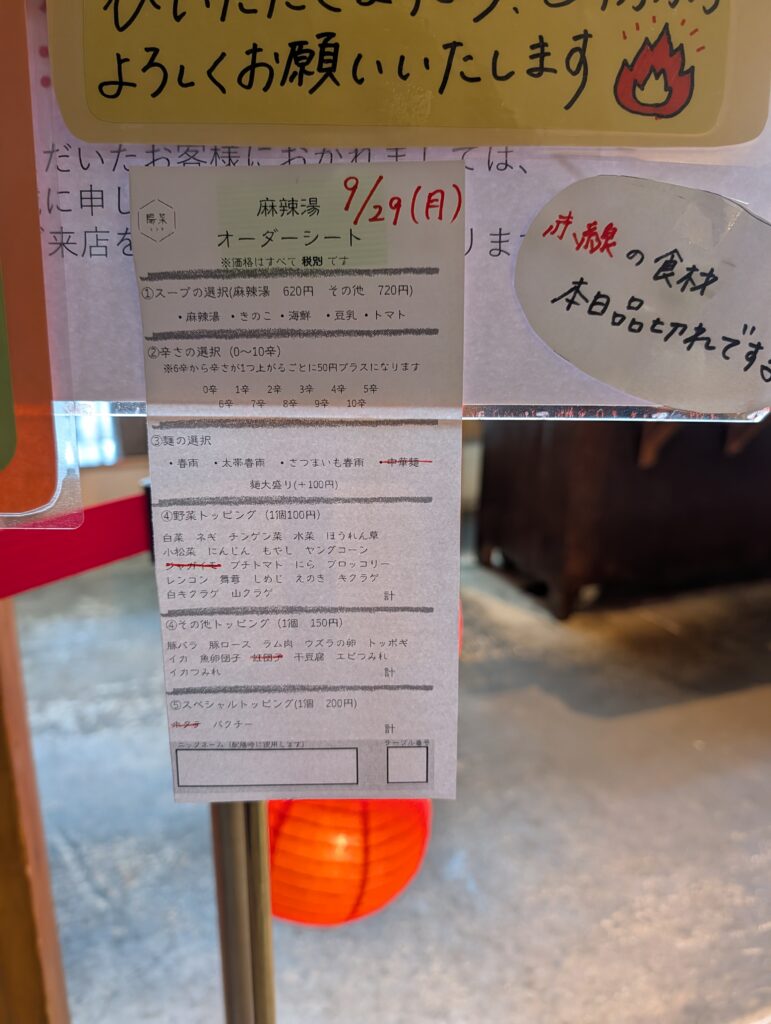 よろしくお願いいたします
だいたお客様におかれましては、
に申し
来店を
りま
陽菜
麻辣湯 9/29(月)
オーダーシート
※価格はすべて 税別 です
赤線の食材
本日品切れです
①スープの選択(麻辣湯 620円 その他 720円)
・麻辣湯 ・きのこ ・海鮮 ・豆乳 ・トマト
②辛さの選択 (0〜10辛)
※6辛から辛さが1つ上がるごとに50円プラスになります
0辛 1辛 2辛 3辛 4辛 5辛
6辛 7辛 8辛 9辛 10辛
③麺の選択
・春雨 ・太帯春雨 ・さつまいも春雨 ・中華麺
麺大盛り(+100円)
④野菜トッピング (1個100円)
白菜 ネギ チンゲン菜 水菜 ほうれん草
小松菜 にんじん もやし ヤングコーン
ジャガイモ プチトマト にら ブロッコリー
レンコン 舞茸 しめじ えのき キクラゲ
白キクラゲ 山クラゲ 計
④その他トッピング (1個 150円)
豚バラ 豚ロース ラム肉 ウズラの卵 トッポギ
イカ 魚卵団子 干豆腐 エビつみれ
イカつみれ 計
⑤スペシャルトッピング(1個 200円)
ホタテ パクチー 計
ニックネーム (配膳時に使用します) テーブル番号